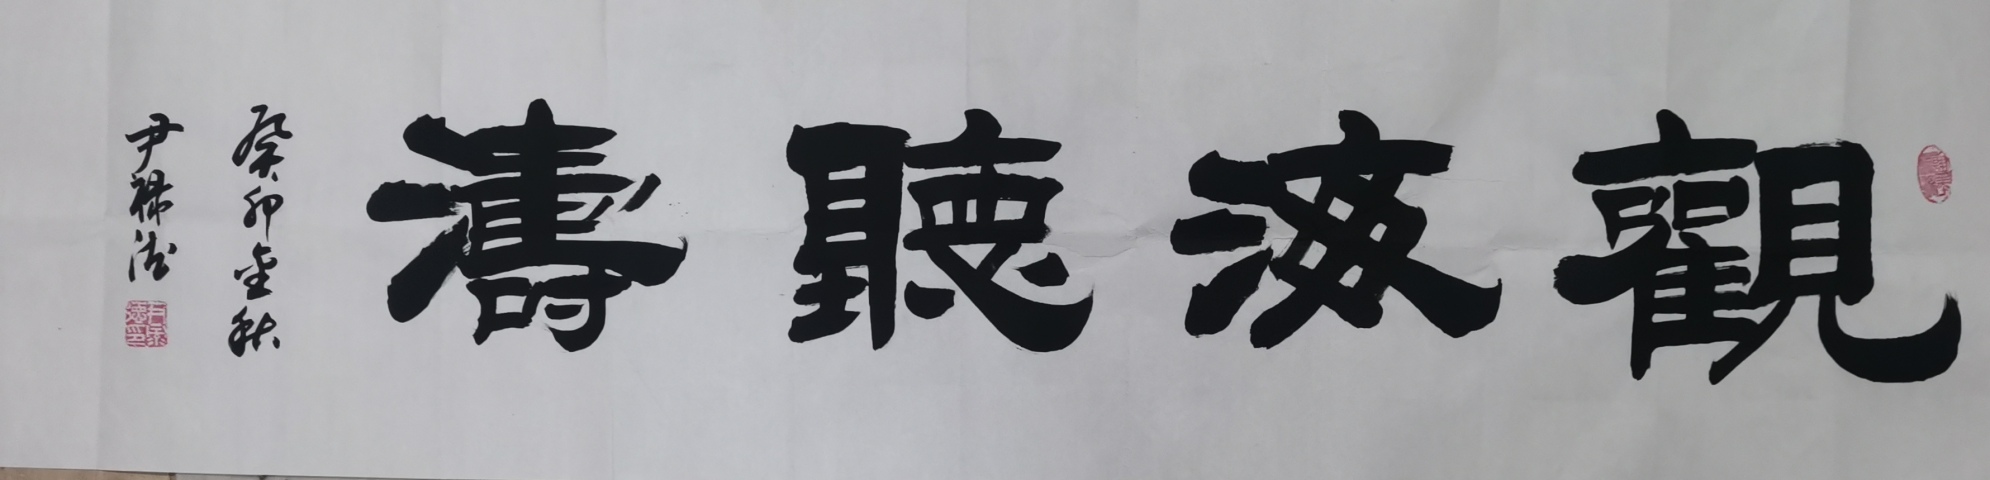 觀海聽濤
癸卯金秋
尹祿德